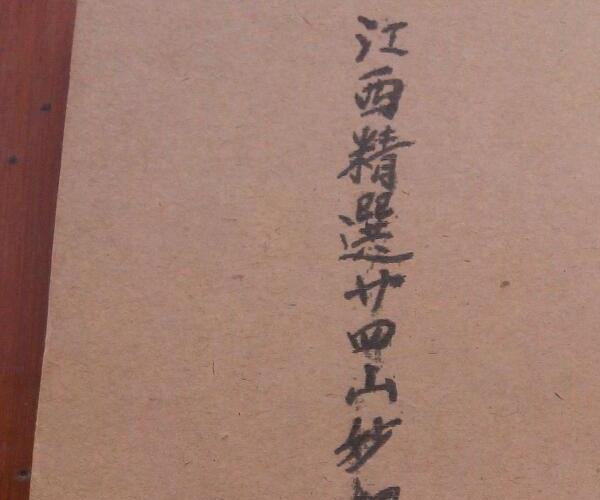 江西精選廿四山妙